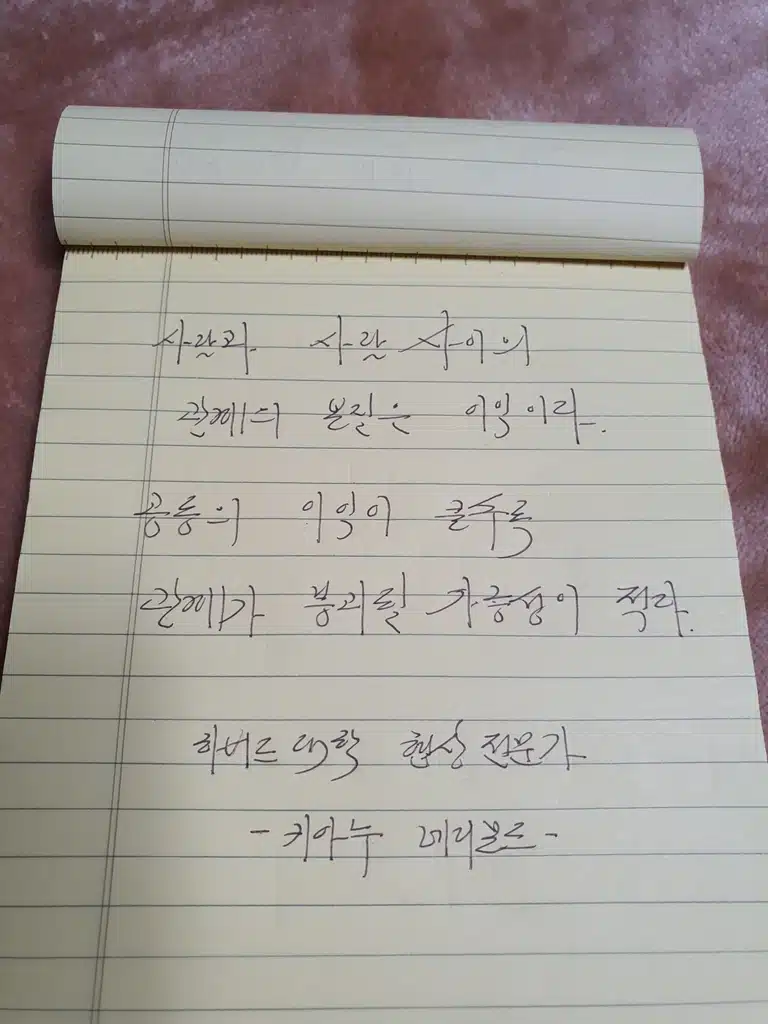 사람과 사람 사이의
관계의 본질은 이익이다.
공통의 이익이 클수록
관계가 풍괴될 가능성이 적다.
하버드 대학 협상 전문가
- 키아누 메리골드 -